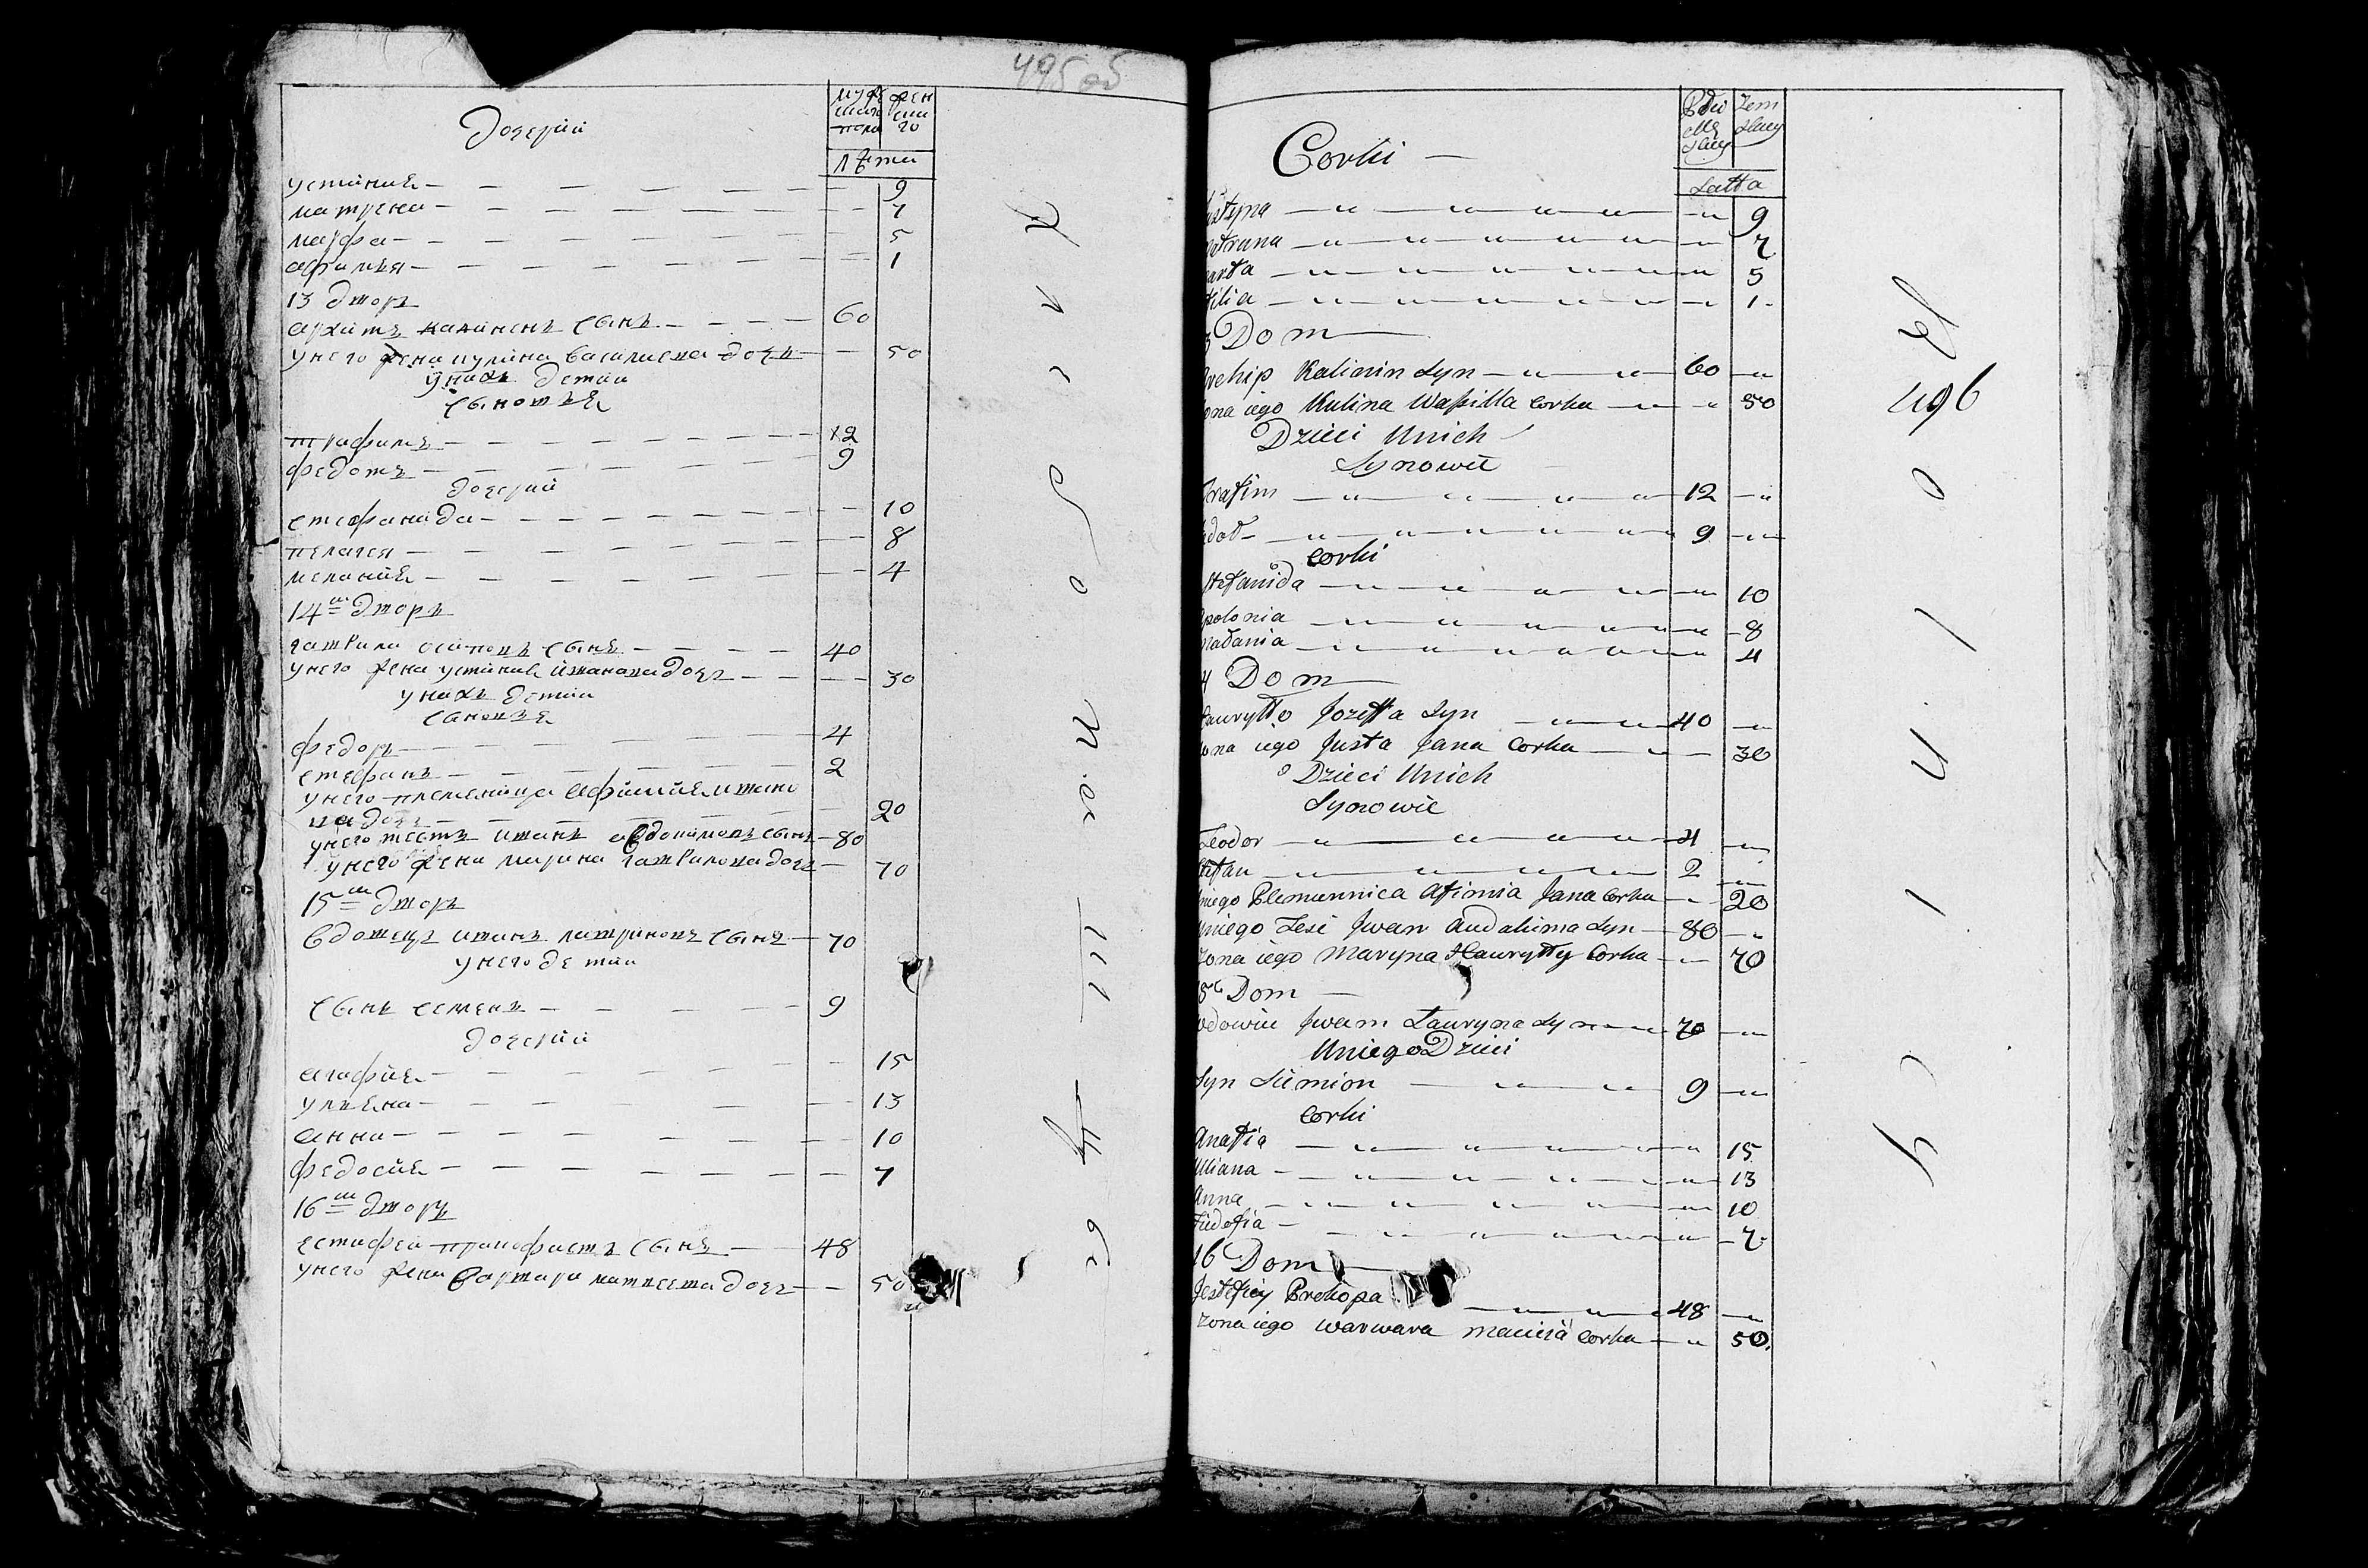 495 об
дочерии
мужескаго пола
женскаго
лѣта
устинiя 9
матрена 7
марфа 5
афимья 1
13 двор
архипъ калининъ сынъ 60
у него жена кулина василиева дочь 50
у них детии
сыновья
трафимъ 12
федотъ 9
дочерии
стефанида 10
пелагея 8
меланiя 4
14 двор
гаврила осиповъ сынъ 40
у него жена устинiя иванова дочь 30
у них детии
сыновья
федоръ 4
стефанъ 2
у него племеница афимия ивано
ва дочь 20
у него тесть иванъ авдокимовъ сынъ 80
у него жена марина гаврилова дочь 70
15 двор
вдовецъ иванъ лавриновъ сынъ 70
у него детии
сынъ семенъ 9
дочерии
агафiя 15
ульяна 13
анна 10
федосiя 7
16 двор
естифей прокофиевъ сынъ 48
у него жена варвара матвеева дочь 50
Corki
Latta
ustyna 9
atruna 7
arta 5
ilia 1
3 Dom
rchip Kalinin Syn 60
ona iego Kulina Wasilla Corka 50
Dzieci Unich
Synowie
Trafim 12
edot 9
Corki
Stefanida 10
Apolonia 8
madania 4
4 Dom
Hauryłło Jozeffa Syn 40
ona iego Justa Jana Corka 30
Dzieci Unich
Synowie
Teodor 4
Steffan 2
niego Plemiennica Afimia Jana Corka 20
Uniego Tesc Jwan Audakima Syn 80
Zona iego Maryna Hauryłły Corka 70
15 Dom
wdowiec Jwan Lauryna Syn 70
Uniego Dzieci
Syn Siemion 9
Corki
Anafia 15
Uliana 13
Anna 10
Fiedosia 7
16 Dom
Jestefiey Prokopa 48
Zona iego Warwara Macieia Corka 50
496